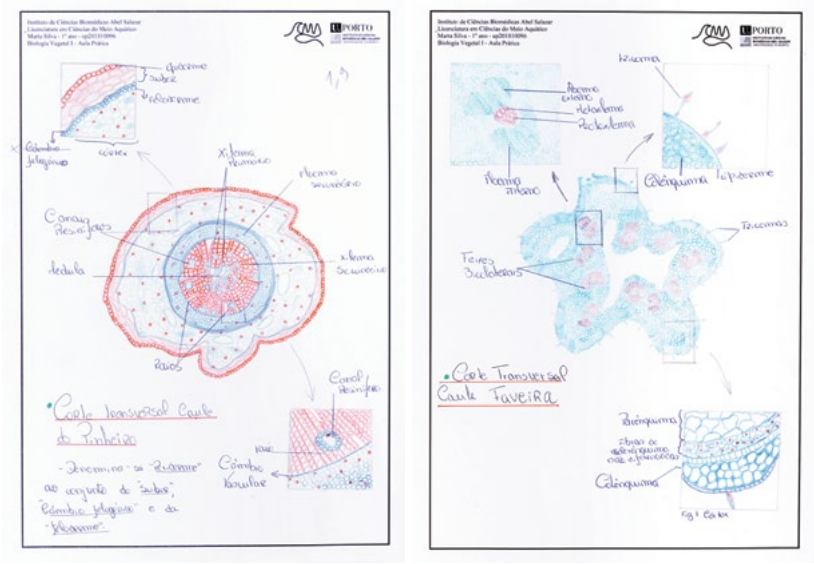 Instituto de Ciências Biomédicas Abel Salazar
Licenciatura em Ciências do Meio Aquático
Marta Silva - 1º ano - up201810096
Biologia Vegetal I - Aula Prática
U.PORTO
epiderme
suber
feloderme
Câmbio
felogénico
córtex
Xilema
primário
floema
secundário
Canais
Resiníferos
Medula
xilema
secundário
Raios
Canal
Resinífero
raio
Câmbio
Vascular
Corte transversal Caule
do Pinheiro
- Denomina-se "Periderme"
ao conjunto do "suber",
"Câmbio felogénico" e da
"feloderme".
Instituto de Ciências Biomédicas Abel Salazar
Licenciatura em Ciências do Meio Aquático
Marta Silva - 1º ano - up201810096
Biologia Vegetal I - Aula Prática
U.PORTO
Floema
externo
Metaxilema
Protoxilema
Floema
interno
tricoma
Colênquima
epiderme
Tricomas
Feixes
Bicolaterais
Corte Transversal
Caule Faveira
Parênquima
fibras de
esclerênquima
Colênquima